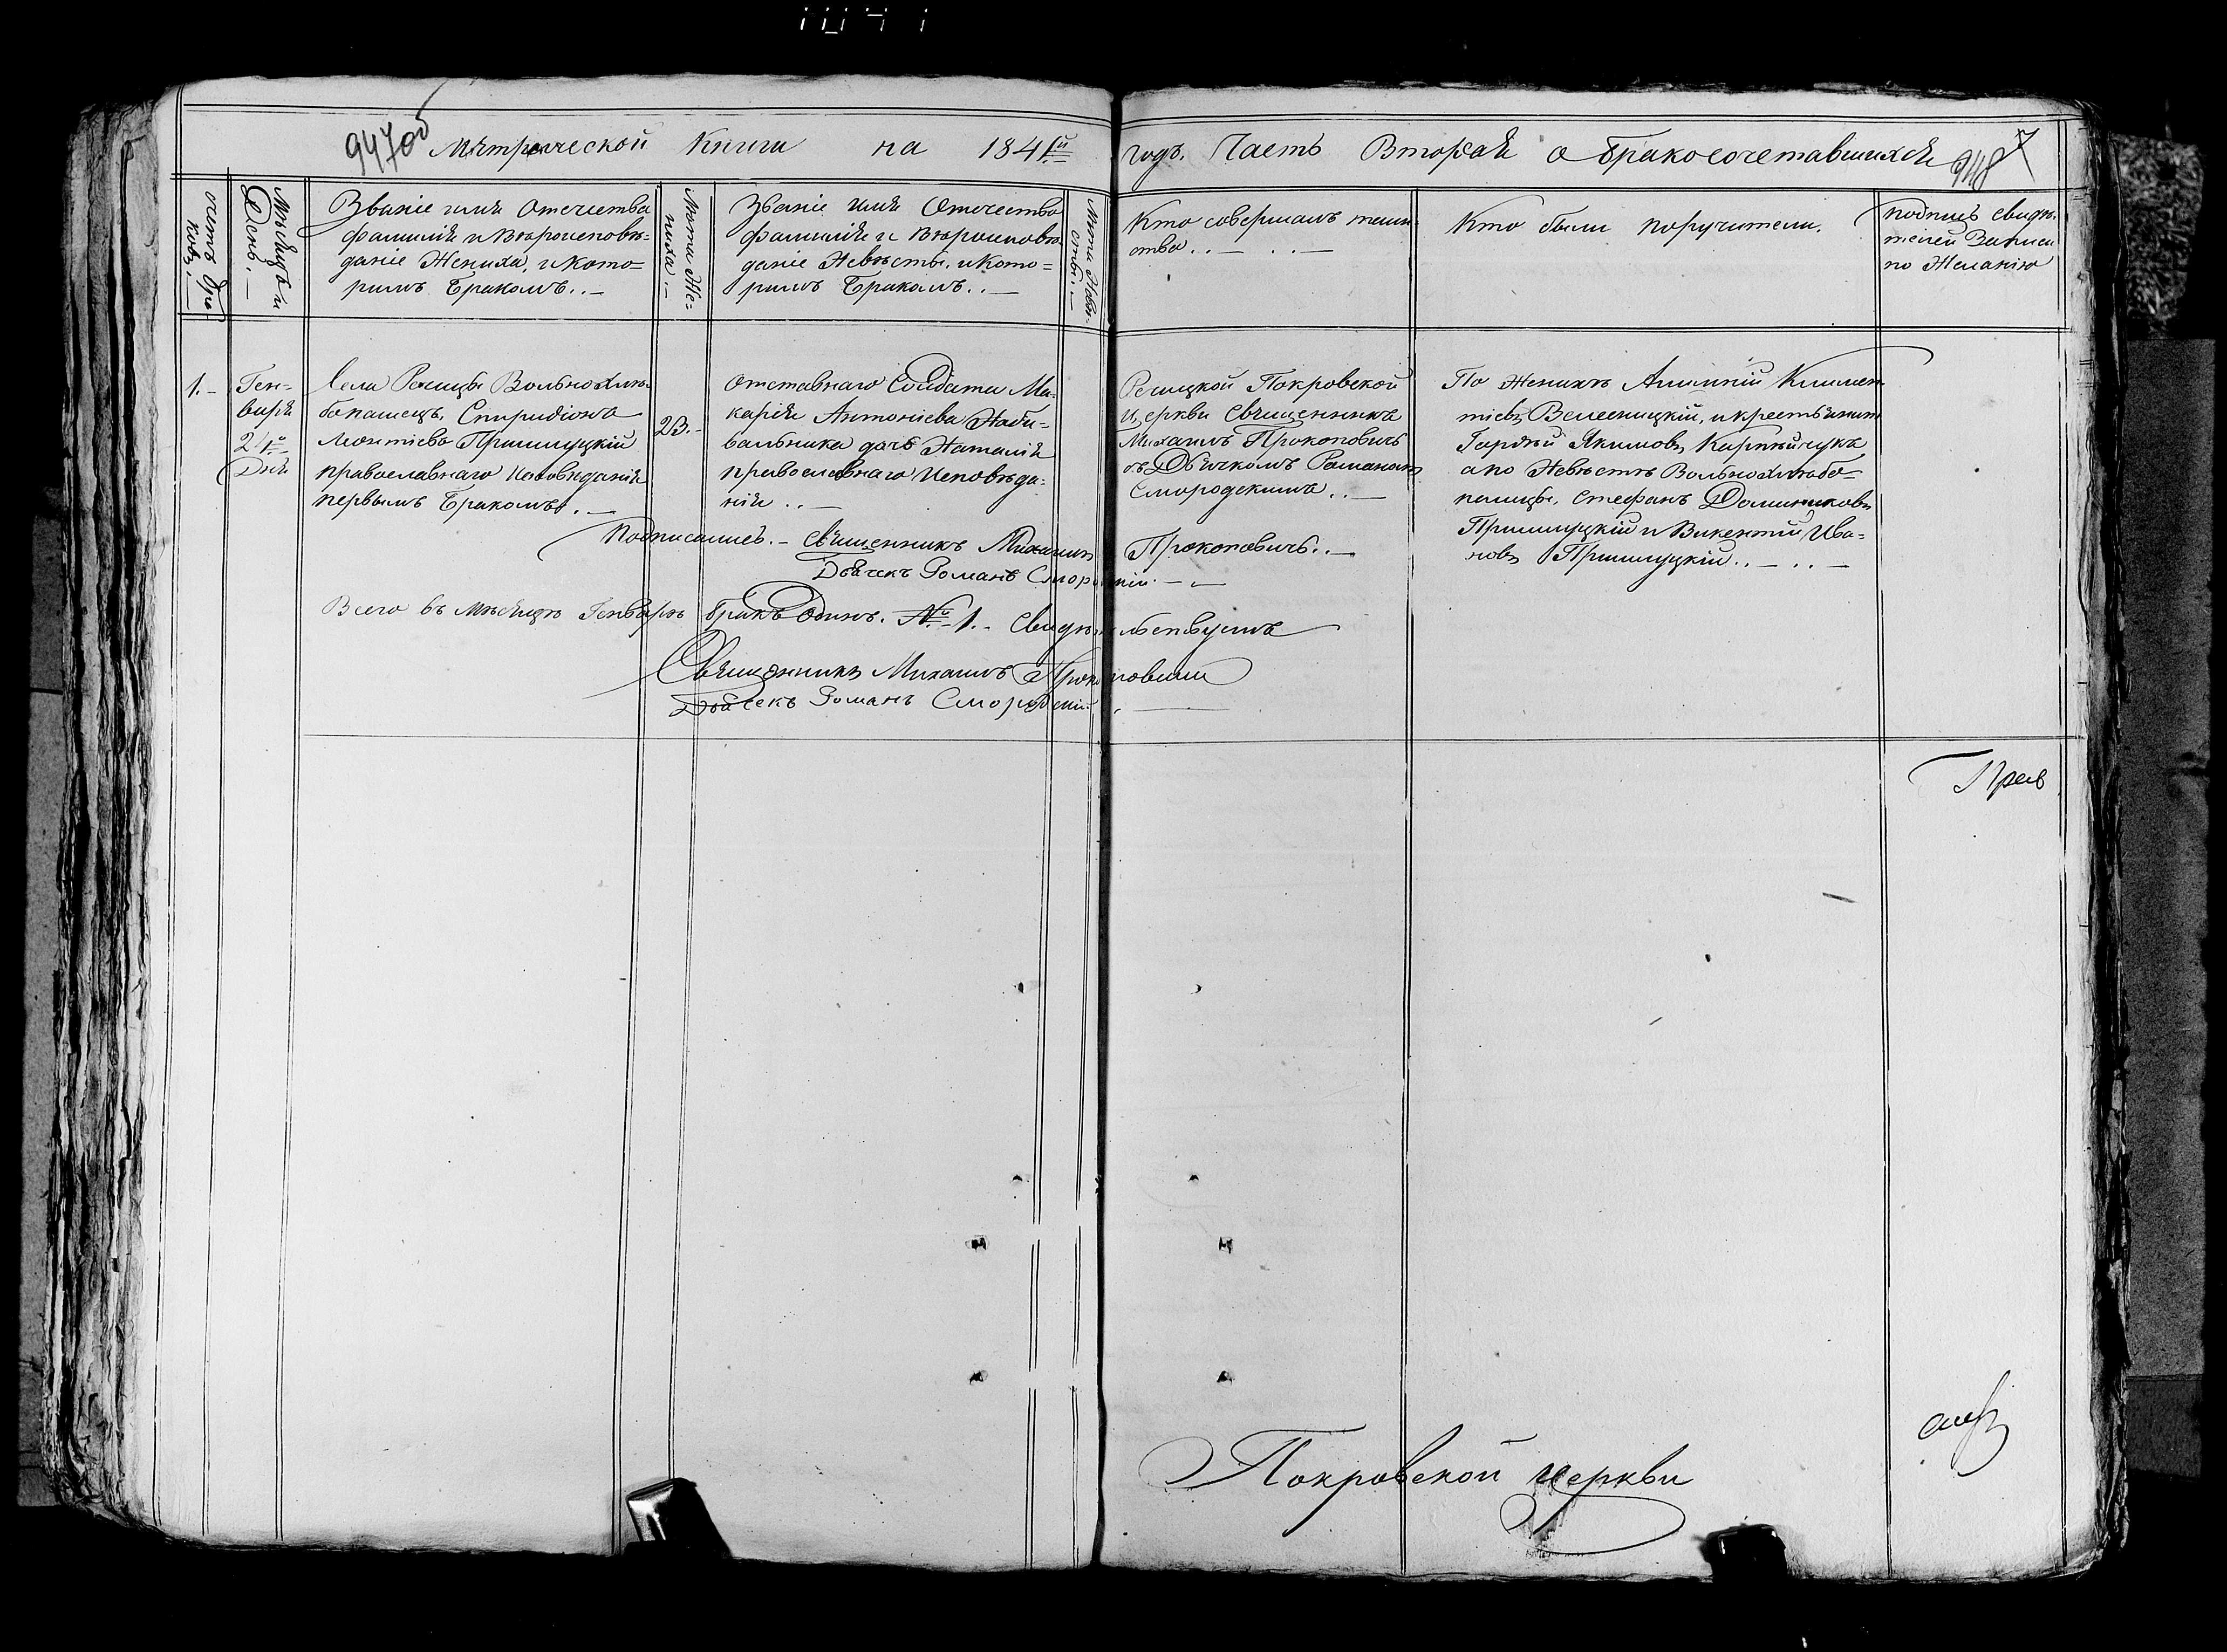 947об
Метрической Книги на 1841й годъ. Часть Вторая о бракосочетавшихся
948
7
счетъ бра-
ковъ.
Мѣсяцъ и
День.
Званіе имя Отечества
фамилія и Вѣроисповѣ=
даніе Жениха, и кото=
рымъ Бракомъ..—
Лѣта Же=
ниха.—
Званіе имя Отечество
фамилія и Вѣроисповѣ
даніе Невѣсты, и кото=
рымъ Бракомъ..—
Лѣта Невѣ-
сты..—
Кто совершалъ таин-
ство..— ..—
Кто были поручители.
подписъ свидѣ-
телей Записи
по Желанію
1.-
Ген=
варя
24й
Дня
Села Речицы Вольнохлѣ-
бопашецъ, Спиридіонъ
Леонтіевъ Пришлуцкій
православнаго исповѣданія
первымъ Бракомъ.—
23.-
отставнаго Солдата Ма-
карія Антоніева Наби=
вальника дочь Наталія
православнаго исповѣда=
нія..—
Речицкой Покровской
Церкви Священникъ
Михаилъ Прокоповичъ
съ Дьячкомъ Романомъ
Смородскимъ..—
По Женихѣ Климен
тіевъ Велесницкій, и крестьянинъ
Гордѣй Якимовъ Карпѣйчукъ
а по Невѣстѣ Вольнохлѣбо=
пашцы, Стефанъ Доминиковъ
Пришлуцкій и Викентій Ива=
новъ Пришлуцкій..— ..—
Подписались.— Священникъ Михаилъ Прокоповичъ..—
Дьячекъ Романъ Смородскій.—
Всего въ мѣсяцѣ Генварѣ бракъ Одинъ. №-1.- Свидѣтельствуемъ
Священникъ Михаилъ Прокоповичъ
Дьячекъ Романъ Смородскій.
Покровской церкви